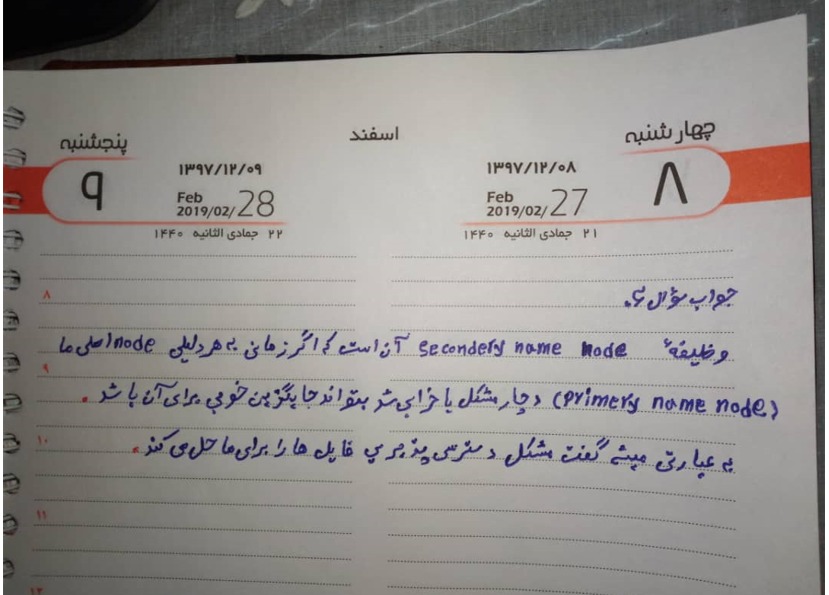 اسفند
چهارشنبه
۸
۱۳۹۷/۱۲/۰۸
Feb
2019/02/27
۲۱ جمادی الثانیه ۱۴۴۰
پنجشنبه
۹
۱۳۹۷/۱۲/۰۹
Feb
2019/02/28
۲۲ جمادی الثانیه ۱۴۴۰
جواب سؤال ۶.
۸
وظیفهٔ secondery name node آن است که اگر زمانی به هر دلیلی node اصلی ما
۹
(primery name node) دچار مشکل یا خرابی شد بتواند جایگزین خوبی برای آن باشد.
۱۰
به عبارتی میشه گفت مشکل دسترس پذیری فایل ها را برای ما حل می کند.
۱۱
۱۲